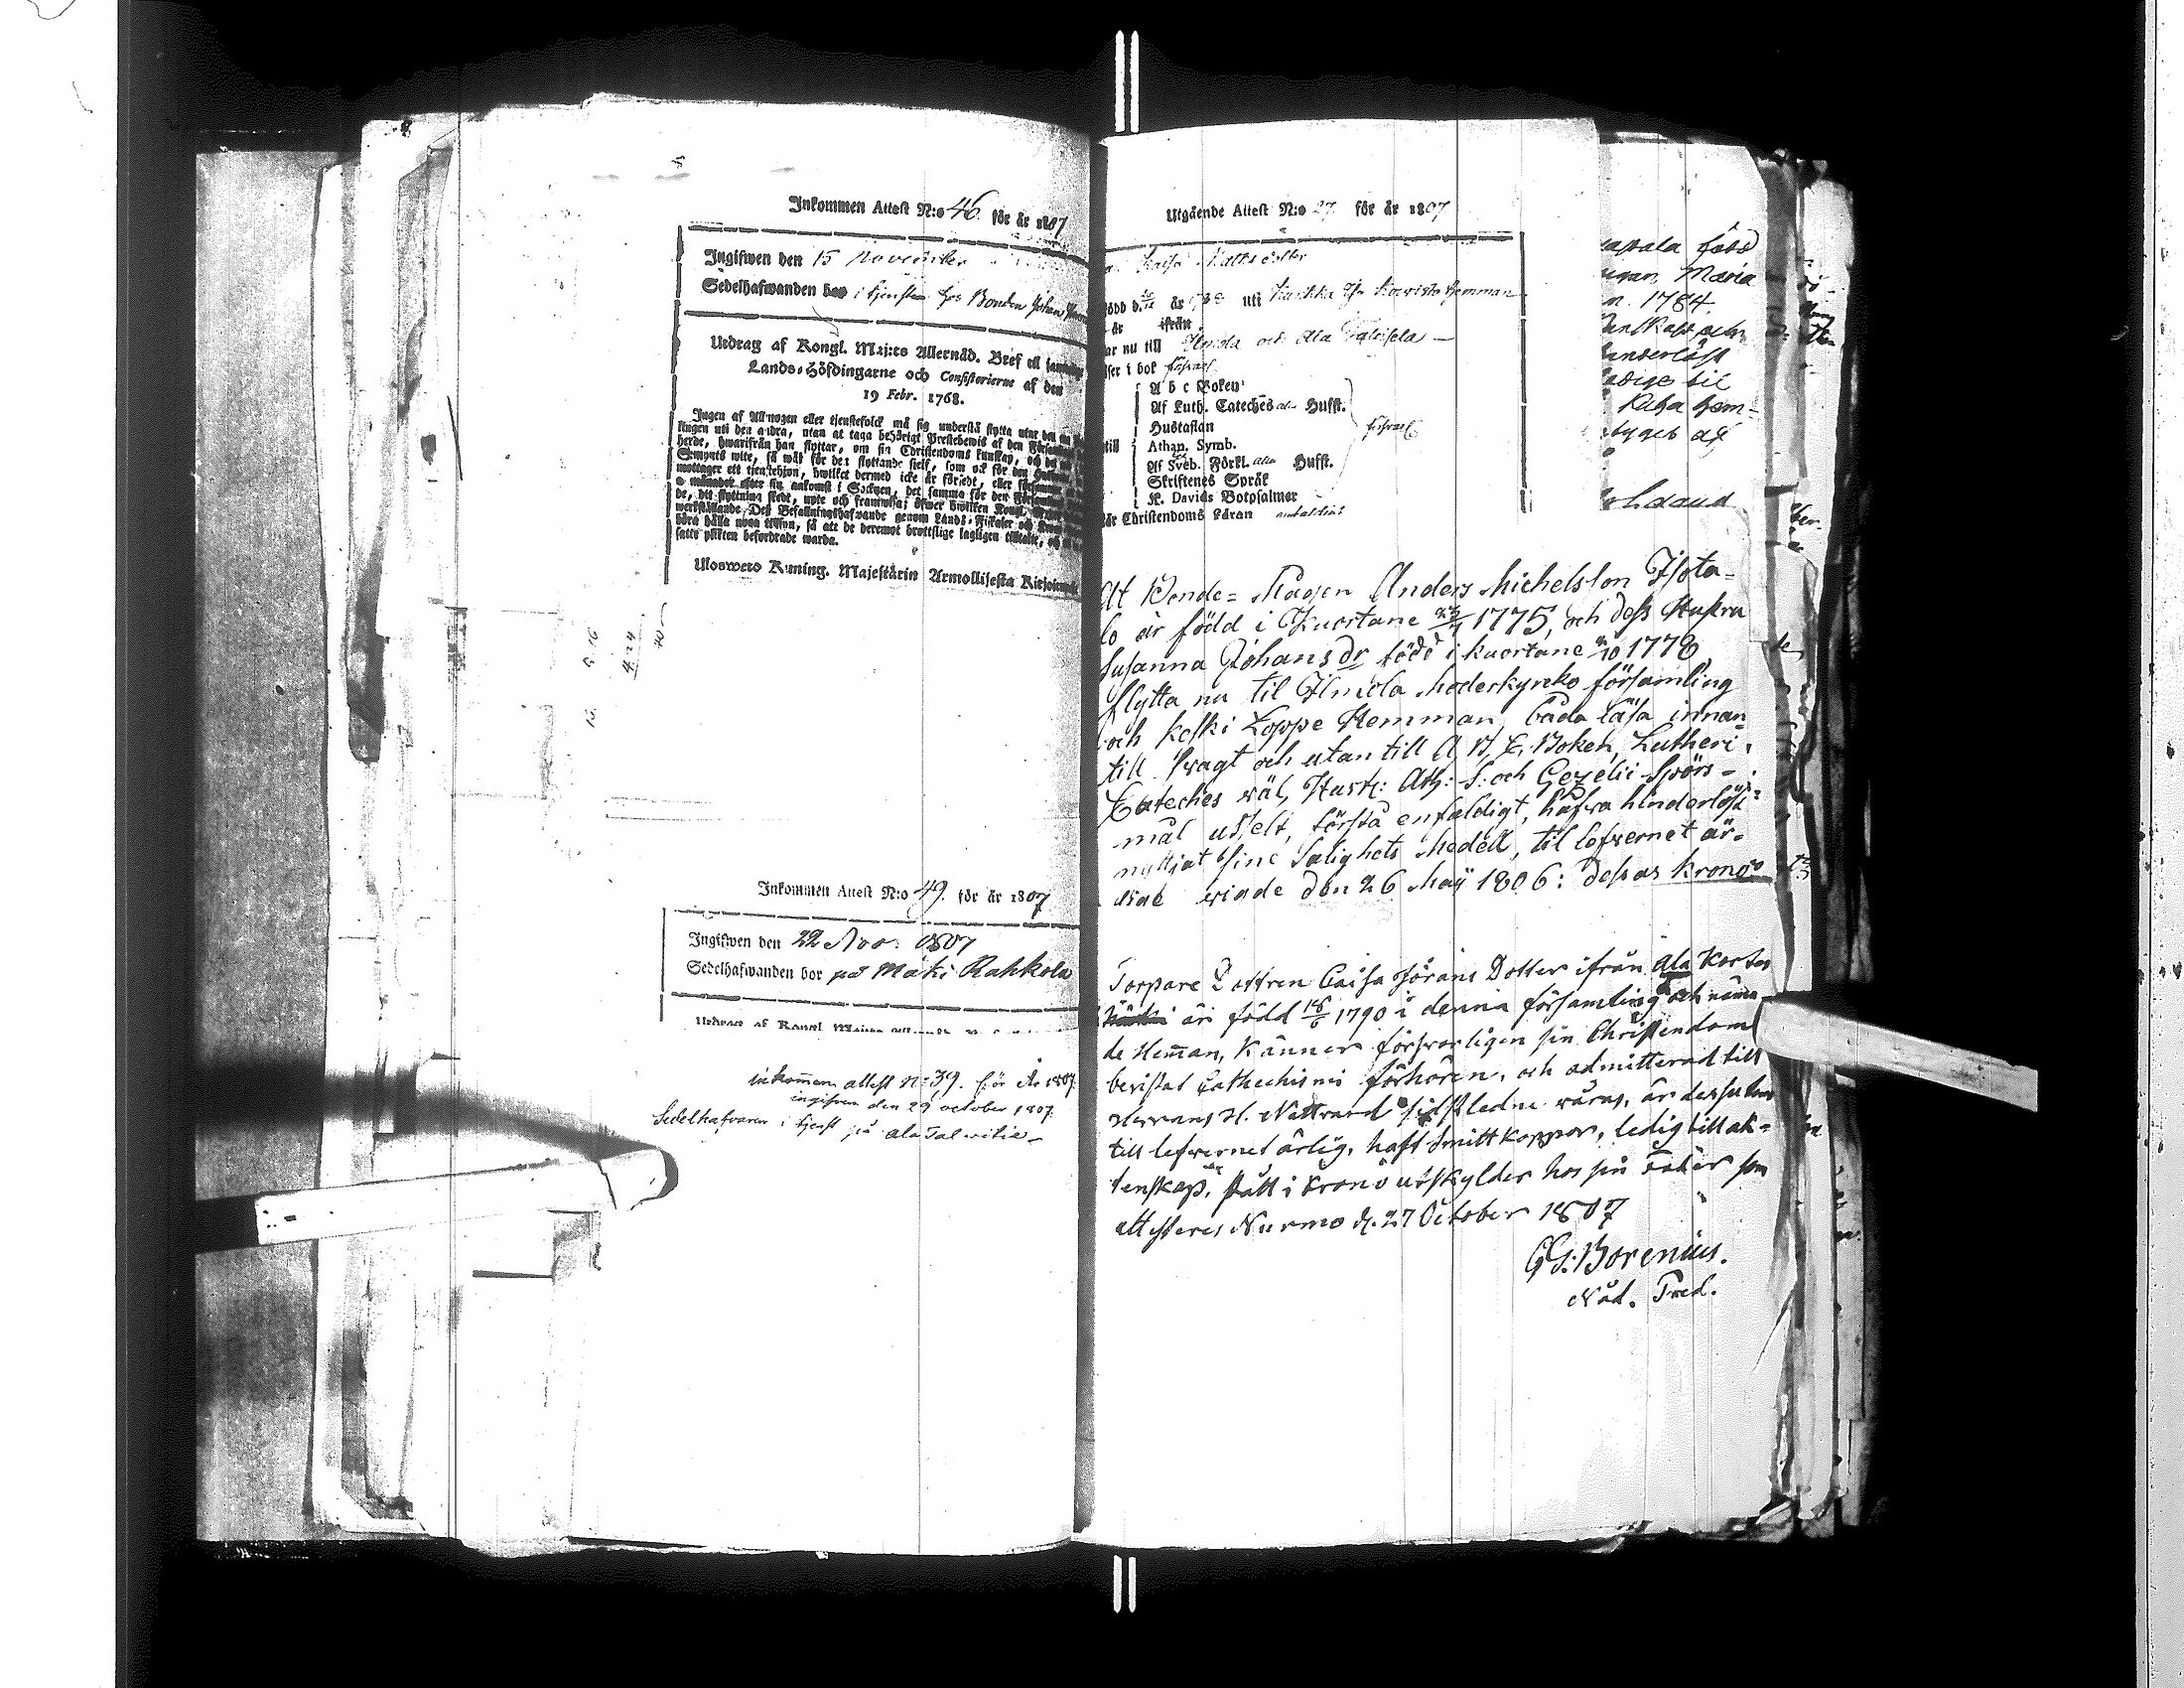 Inkommen Attest N:o 46. för år 1807
Ingifwen den 15 November
Sedelhafwanden bor i tjensten hos Bonden Johan
Utdrag af Kongl. Maj:ts Allernåd. Bref til samtelige
Lands-Höfdingarne och Consistorierne af den
19 Febr. 1768.
Ingen af Allmogen eller tjenstefolck må sig understå flytta utur den ena
kingen uti den andra, utan at taga behörigt Prestebewis af den
herde, hwarifrån han flyttar, om sin Christendoms kunskap, och
wite, så wäl för den flyttande sielf, som ock för den
mottager ett tjenstehjon, hwilket dermed icke är försedt, eller
månader efter sin ankomst i Socknen, det samma för den
de, dit flyttning skedt, upte och framwisa; öfwer hwilken Kongl.
werkställande Des Befallningshafwande genom Lands-Fiskaler och
böra hålla noga tilsyn, så att de deremot brottslige lagligen tilltalte, och
satte plikten befordrade warda.
Uloswero Kuning. Majestärin Armollisesta Kirjoituxesta
Inkommen Attest N:o 49. för år 1807
Ingifwen den 22 Nov: 1807
Sedelhafwanden bor på Mäki Rahkola
Utdrag af Kongl. Maj:ts
inkommen attest N:o 39. för År 1807.
ingifven den 29 october 1807.
Sedelhafvaren i tjenst på ala Talvitie
Utgående Attest N:o 27. för år 1807
Kaisa Mattsdotter
född d. år uti Hemman
är ifrån
ar nu till Ilmola och Ala
ser i bok försvarl
A b c Boken
Af Luth. Cateches Husft.
Hustaflan
till Athan. Symb. försvarl
Af Sveb. Förkl. Husft.
Skriftenes Språk
K. Davids Botpsalmer
är Christendoms Läran enfaldigt
apala född
Maria
n. 1784.
hinderlöst
til
Ritza hem-
tyget af
At Bonde-Mågen Anders Michelsson Isota-
lo är född i Kuortane 1775, och dess Hustru
Susanna Johansdr född i kuortane 1778,
flytta nu til Ilmola Moderkyrko församling
och keski Loppe Hemman, båda läsa innan-
till swagt och utantill A, B, C, Boken, Lutheri
Cateches wäl, Hust: Ath: S: och Gezelii Spörs-
mål uselt, förstå enfaldigt, hafwa hinderlöst
nyttjat sine Salighets Medell, til lefwernet är-
lige wigde den 26 Maij 1806: dessas krono
Torpare Dottren Caisa Jörans Dotter ifrån Ala Kortes
är född 18/6 1790 i denna församling och näm-
de Heman, känner försvarligen sin Christendom
bevistat Cathechismi förhören, och admitterad till
Herrans H. Nattvard sidstledne våras, är dessutom
till lefvernet ärlig, haft Smittkoppor, ledig till äk-
tenskap, stått i krono utskylder hos sin Fader som
attesteres Nurmo d. 27 October 1807
G:Borenius.
Nåd. Pred.